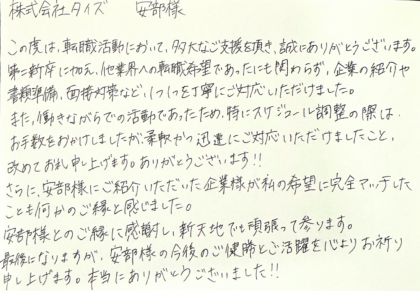 株式会社タイズ 安部様
この度は、転職活動において、多大なご支援を頂き、誠にありがとうございます。
第二新卒に加え、他業界への転職希望であったにも関わらず、企業の紹介や
書類準備、面接対策など、1つ1つを丁寧にご対応いただけました。
また、働きながらでの活動であったため、特にスケジュール調整の際は
お手数をおかけしましたが柔軟かつ迅速にご対応いただけましたこと、
改めてお礼申し上げます。ありがとうございます!!
さらに、安部様にご紹介いただいた企業様が私の希望に完全マッチした
ことも何かのご縁と感じました。
安部様とのご縁に感謝し、新天地でも頑張って参ります。
最後になりますが、安部様の今後のご健勝とご活躍を心よりお祈り
申し上げます。本当にありがとうございました!!